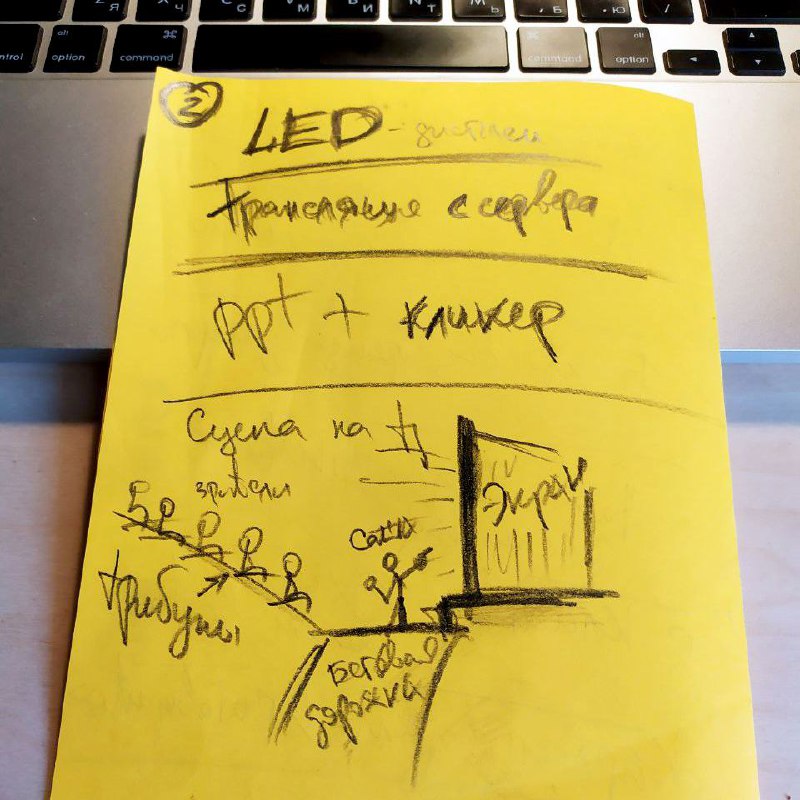 Я Ч С М И Т Ь Б Ю
control
alt option
⌘ command
⌘ command
alt option
2
LED - дисплеи
Трансляция с сервера
ppt + кликер
Сцена на
зрители
Экран
трибуны
Беговая
дорожка